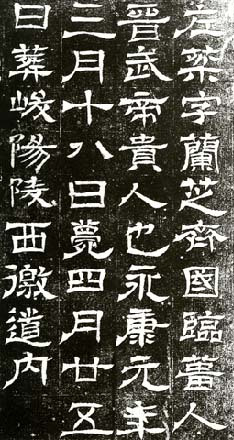 左棻字蘭芝齊國臨菑人
晉武帝貴人也永康元年
三月十八日薨四月廿五
日葬峻陽陵西徼道内